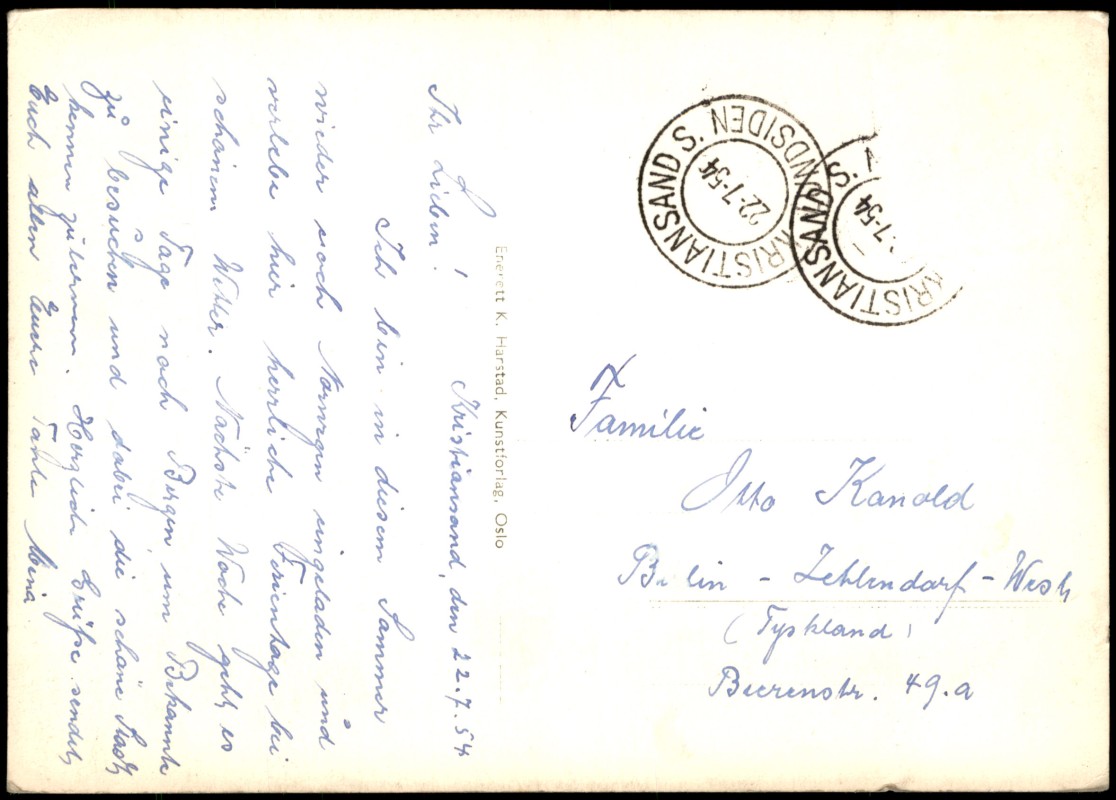 Kristiansand, den 22.7.54
Ihr Lieben!
Ich bin in diesem Sommer
wieder nach Norwegen eingeladen und
verlebe hier herrliche Ferientage bei
schönem Wetter. Nächste Woche geht es
einige Tage nach Bergen um Bekannte
zu besuchen und dabei die schöne Stadt
kennen zu lernen. Herzliche Grüße sendet
Euch allen Eure Tante
Enerett K. Harstad, Kunstforlag, Oslo
KRISTIANSAND S. LUNDSIDEN
22.7.54
KRISTIANSAND S.
7.54
Familie
Otto Kanold
Berlin - Zehlendorf - West
(Tyskland)
Beerenstr. 49.a